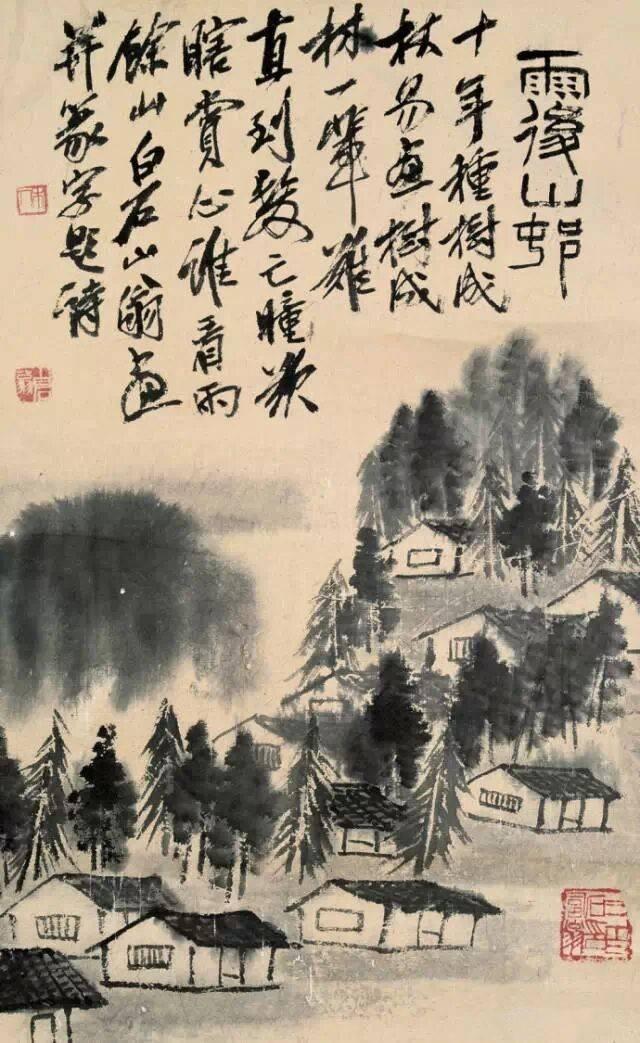 雨後山邨
十年種樹成
林易畫樹成
林一輩難
直到髮亡瞳欲
瞎賞心誰看雨
餘山白石山翁畫
并篆字題詩